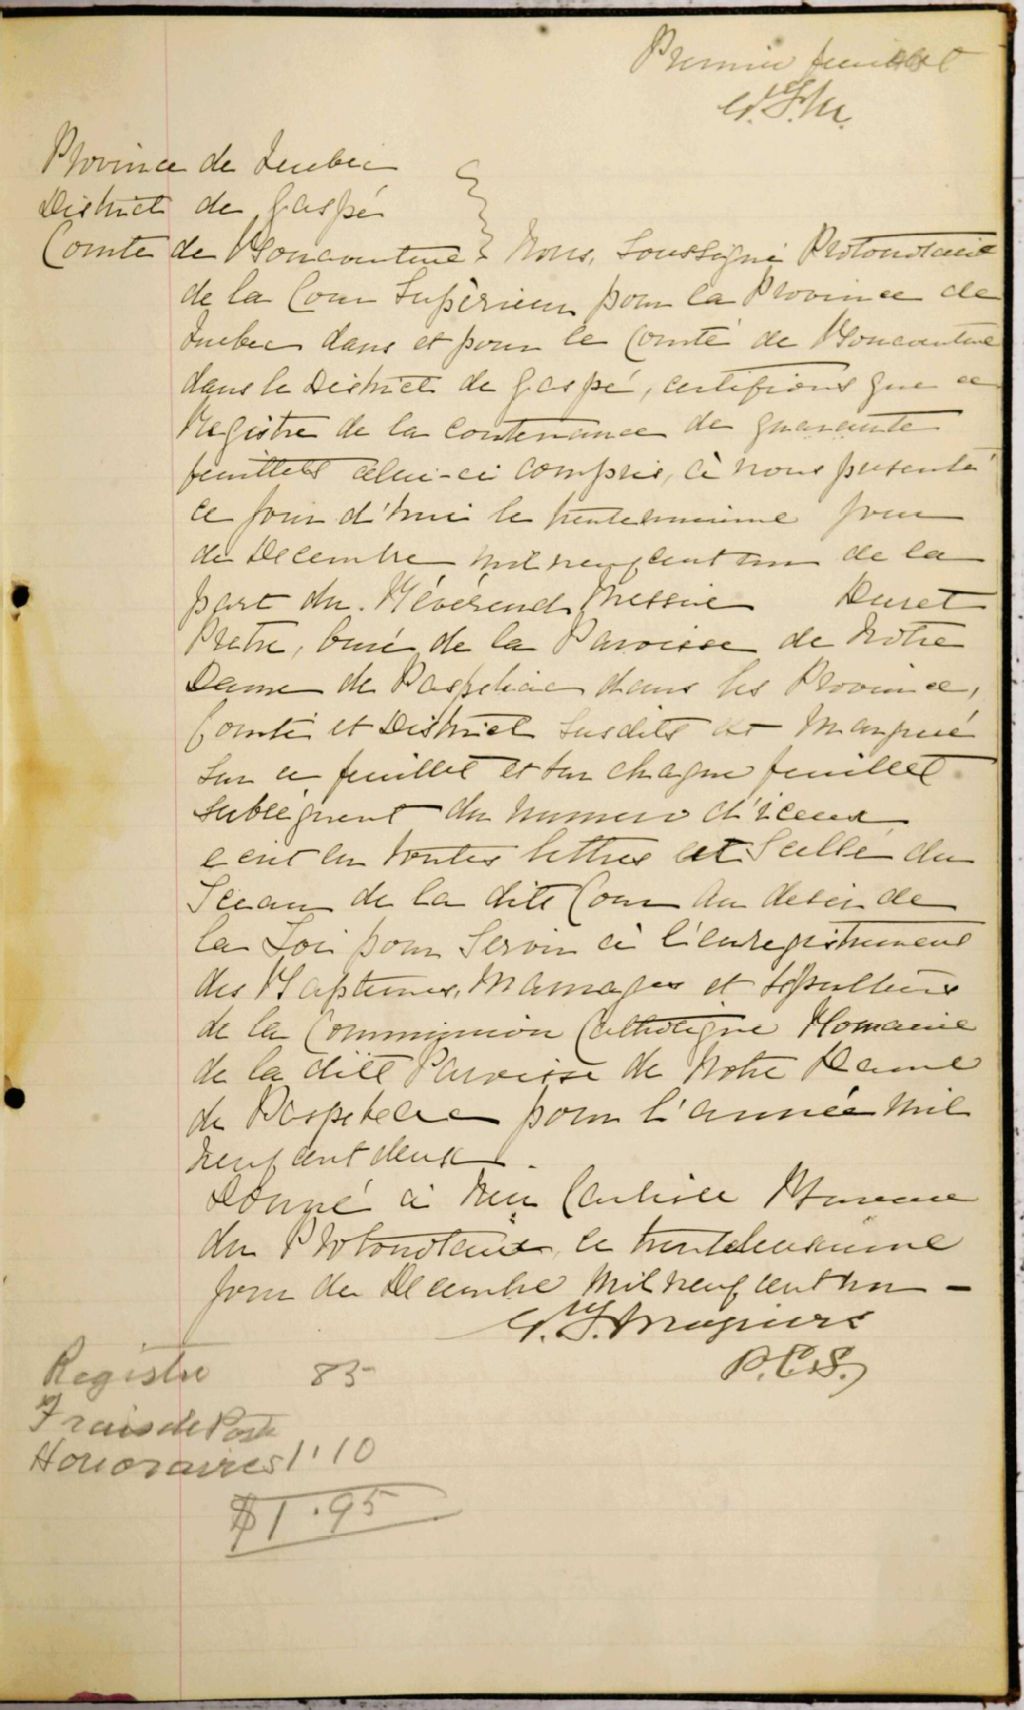 Premier feuillet
W. S. M.
Province de Quebec
District de Gaspé
Comté de Bonaventure Nous, Soussigné Protonotaire
de la Cour Supérieur pour la Province de
Quebec dans et pour le Comté de Bonaventure
dans le District de Gaspé, certifions que ce
Registre de la contenance de quarante
feuillets celui-ci compris, à nous presenté
ce jour d'hui le trenteunieme jour
de Decembre mil neuf cent un de la
part du Révérend Messire Duret
Pretre, Curé de la Paroisse de Notre
Dame de Paspebiac dans les Province,
Comté et District susdits est Marqué
sur ce feuillet et sur chaque feuillet
subséquent du numero d'iceux
ecrit en toutes lettres et Scellé du
Sceau de la dite Cour au desir de
la Loi pour Servir à l'enregistrement
des Baptemes, Mariages et sépultures
de la Communion Catholique Romaine
de la dite Paroisse de Notre Dame
de Paspebiac pour l'année mil
neuf cent deux.
Donné à New Carlisle Bureau
du Protonotaire, ce trente
jour de Decembre mil neuf cent un —
P.C.S.
Registre 85
Frais de Poste
Honoraires 1.10
$1.95